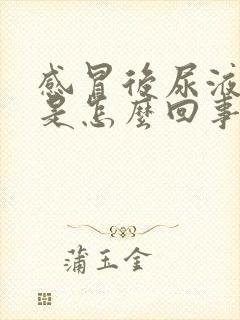 感冒後尿液
是怎麼回事
蒲玉金